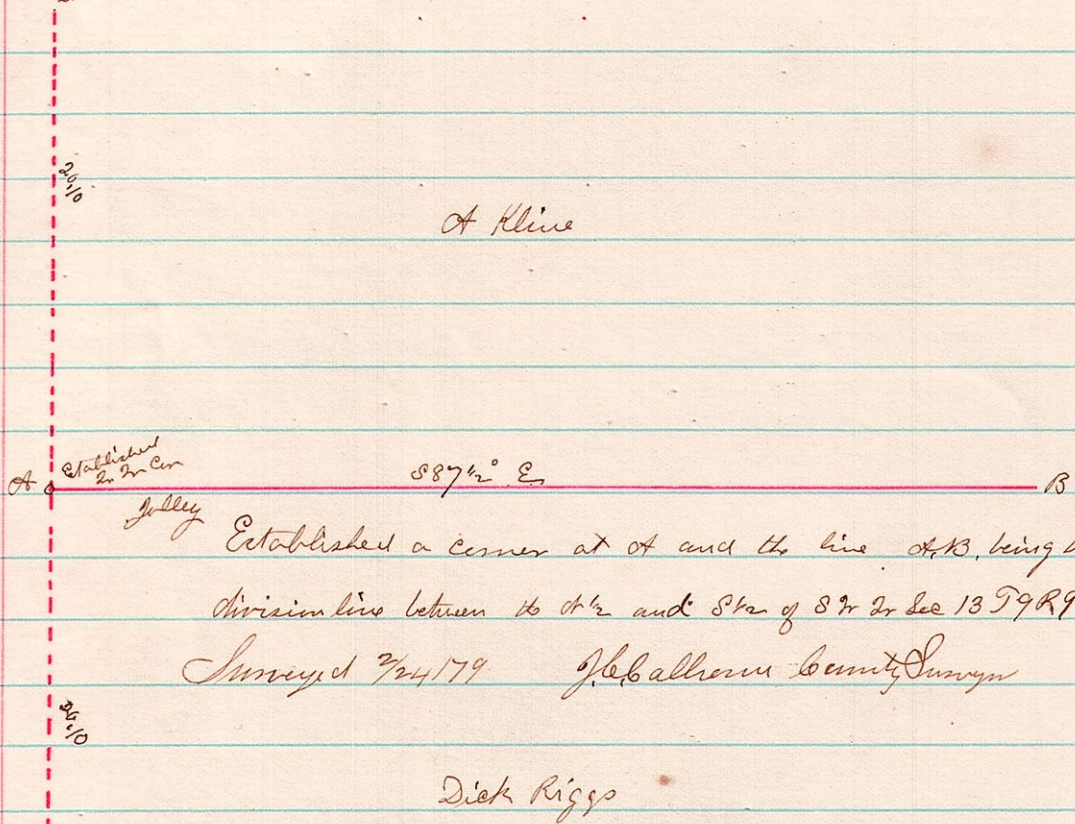 20,10
A Kline
Established
Qr Qr Cor
A S87 1/2° E B
Jolley
Established a corner at A and the line A,B, being
division line between the N 1/2 and S 1/2 of S W Qr Sec 13 T9 R9
Surveyed 2/24/79 J.C.Calhoun County Surveyor
20,10
Dick Riggs